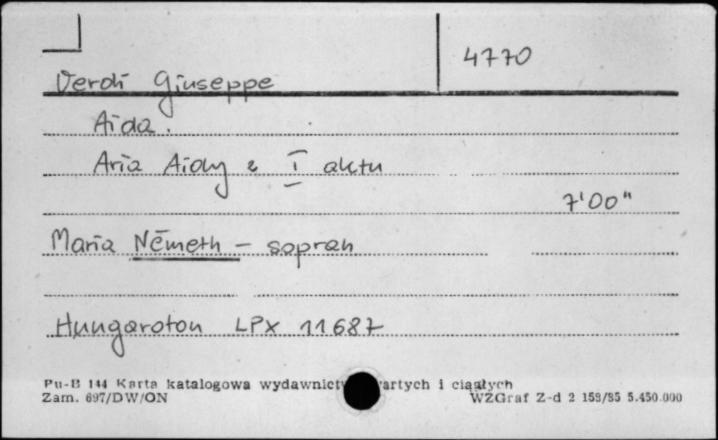 4770
Verdi Giuseppe
Aida.
Aria Aidy z I aktu
7'00"
Maria Németh – sopran
Hungaroton LPX 11687
Pu-B 144 Karta katalogowa wydawnict artych i ciągłych
Zam. 697/DW/ON WZGraf Z-d 2 159/85 5.450.000